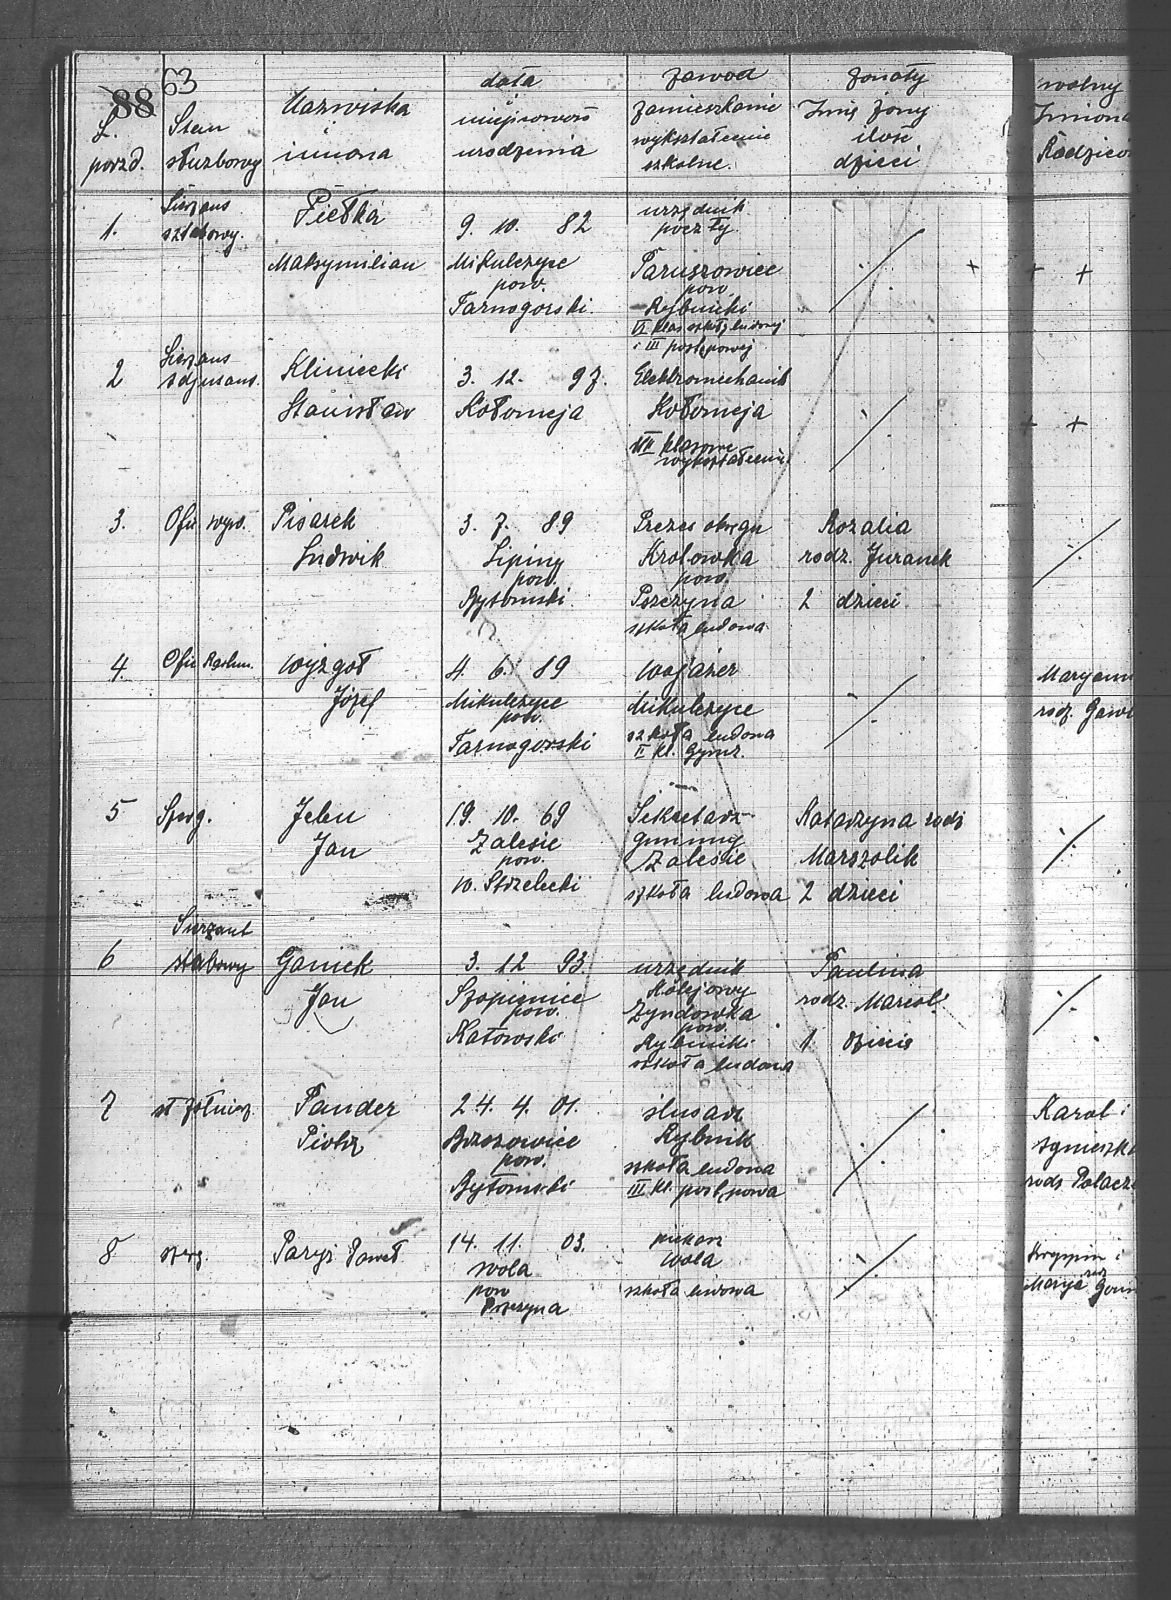 88 63
L. porzd.
Stan służbowy
Nazwiska imiona
data miejscowość urodzenia
zawod zamieszkanie wykształcenie szkolne.
żonaty Imię żony ilość dzieci
wolny Imiona Rodziców
1.
Sierżans sztabowy.
Piełka
Maksymilian
9. 10. 82
Mikulczyce
pow.
Tarnogorski.
urzędnik
poczty.
Paruszowiec
pow.
Rybnicki
VI klas szkoły ludowej
i III postępowej
+ + +
2
Sierzans
Kliniecki
Stanisław
3. 12. 97.
Kołomeja
Elektromechanik
Kołomeja
klasowe
wykształcenie
+ +
3.
Ofic wyw.
Pisarek
Ludwik
3. 7. 89
Lipiny
pow.
Bytomski
Prezes okręgu
Krolowka
pow.
Pszczyna
szkoła ludowa
Rozalia
rodz. Juranek
2 dzieci
4.
Ofic Rachun.
Wyzgoł
Józef
4. 6. 89
Mikulczyce
pow.
Tarnogorski
Wojażer
Mikulczyce
szkoła ludowa
II kl. Gymz.
Maryann
rodz. Gawl
5
Sierg.
Jelen
Jan
19. 10. 69
Zalesie
pow.
w. Strzelecki
Sekretarz
gminny
Zalesie
szkoła ludowa
Katarzyna rodz
Marszolik
2 dzieci
6
Sierzant
stabowy
Ganiek
Jan
3. 12 93
Szopienice
pow.
Katowski
urzędnik
Kolejowy
Zyndowka
pow.
Rybnicki
szkoła ludowa
Paulina
rodz. Marcol.
1. dziecię
7
st żołnierz.
Pander
Piotr
24. 4. 01.
Brzozowice
pow.
Bytomski
ślusarz
Rybnik
szkoła ludowa
III kl. postępowa
Karol i
Agnieszka
rodz Polacze
8
sierg.
Paryż Paweł
14. 11. 03.
Wola
pow
Pszczyna
piekarz
Wola
szkoła ludowa
Kryspin i
Marya rodz